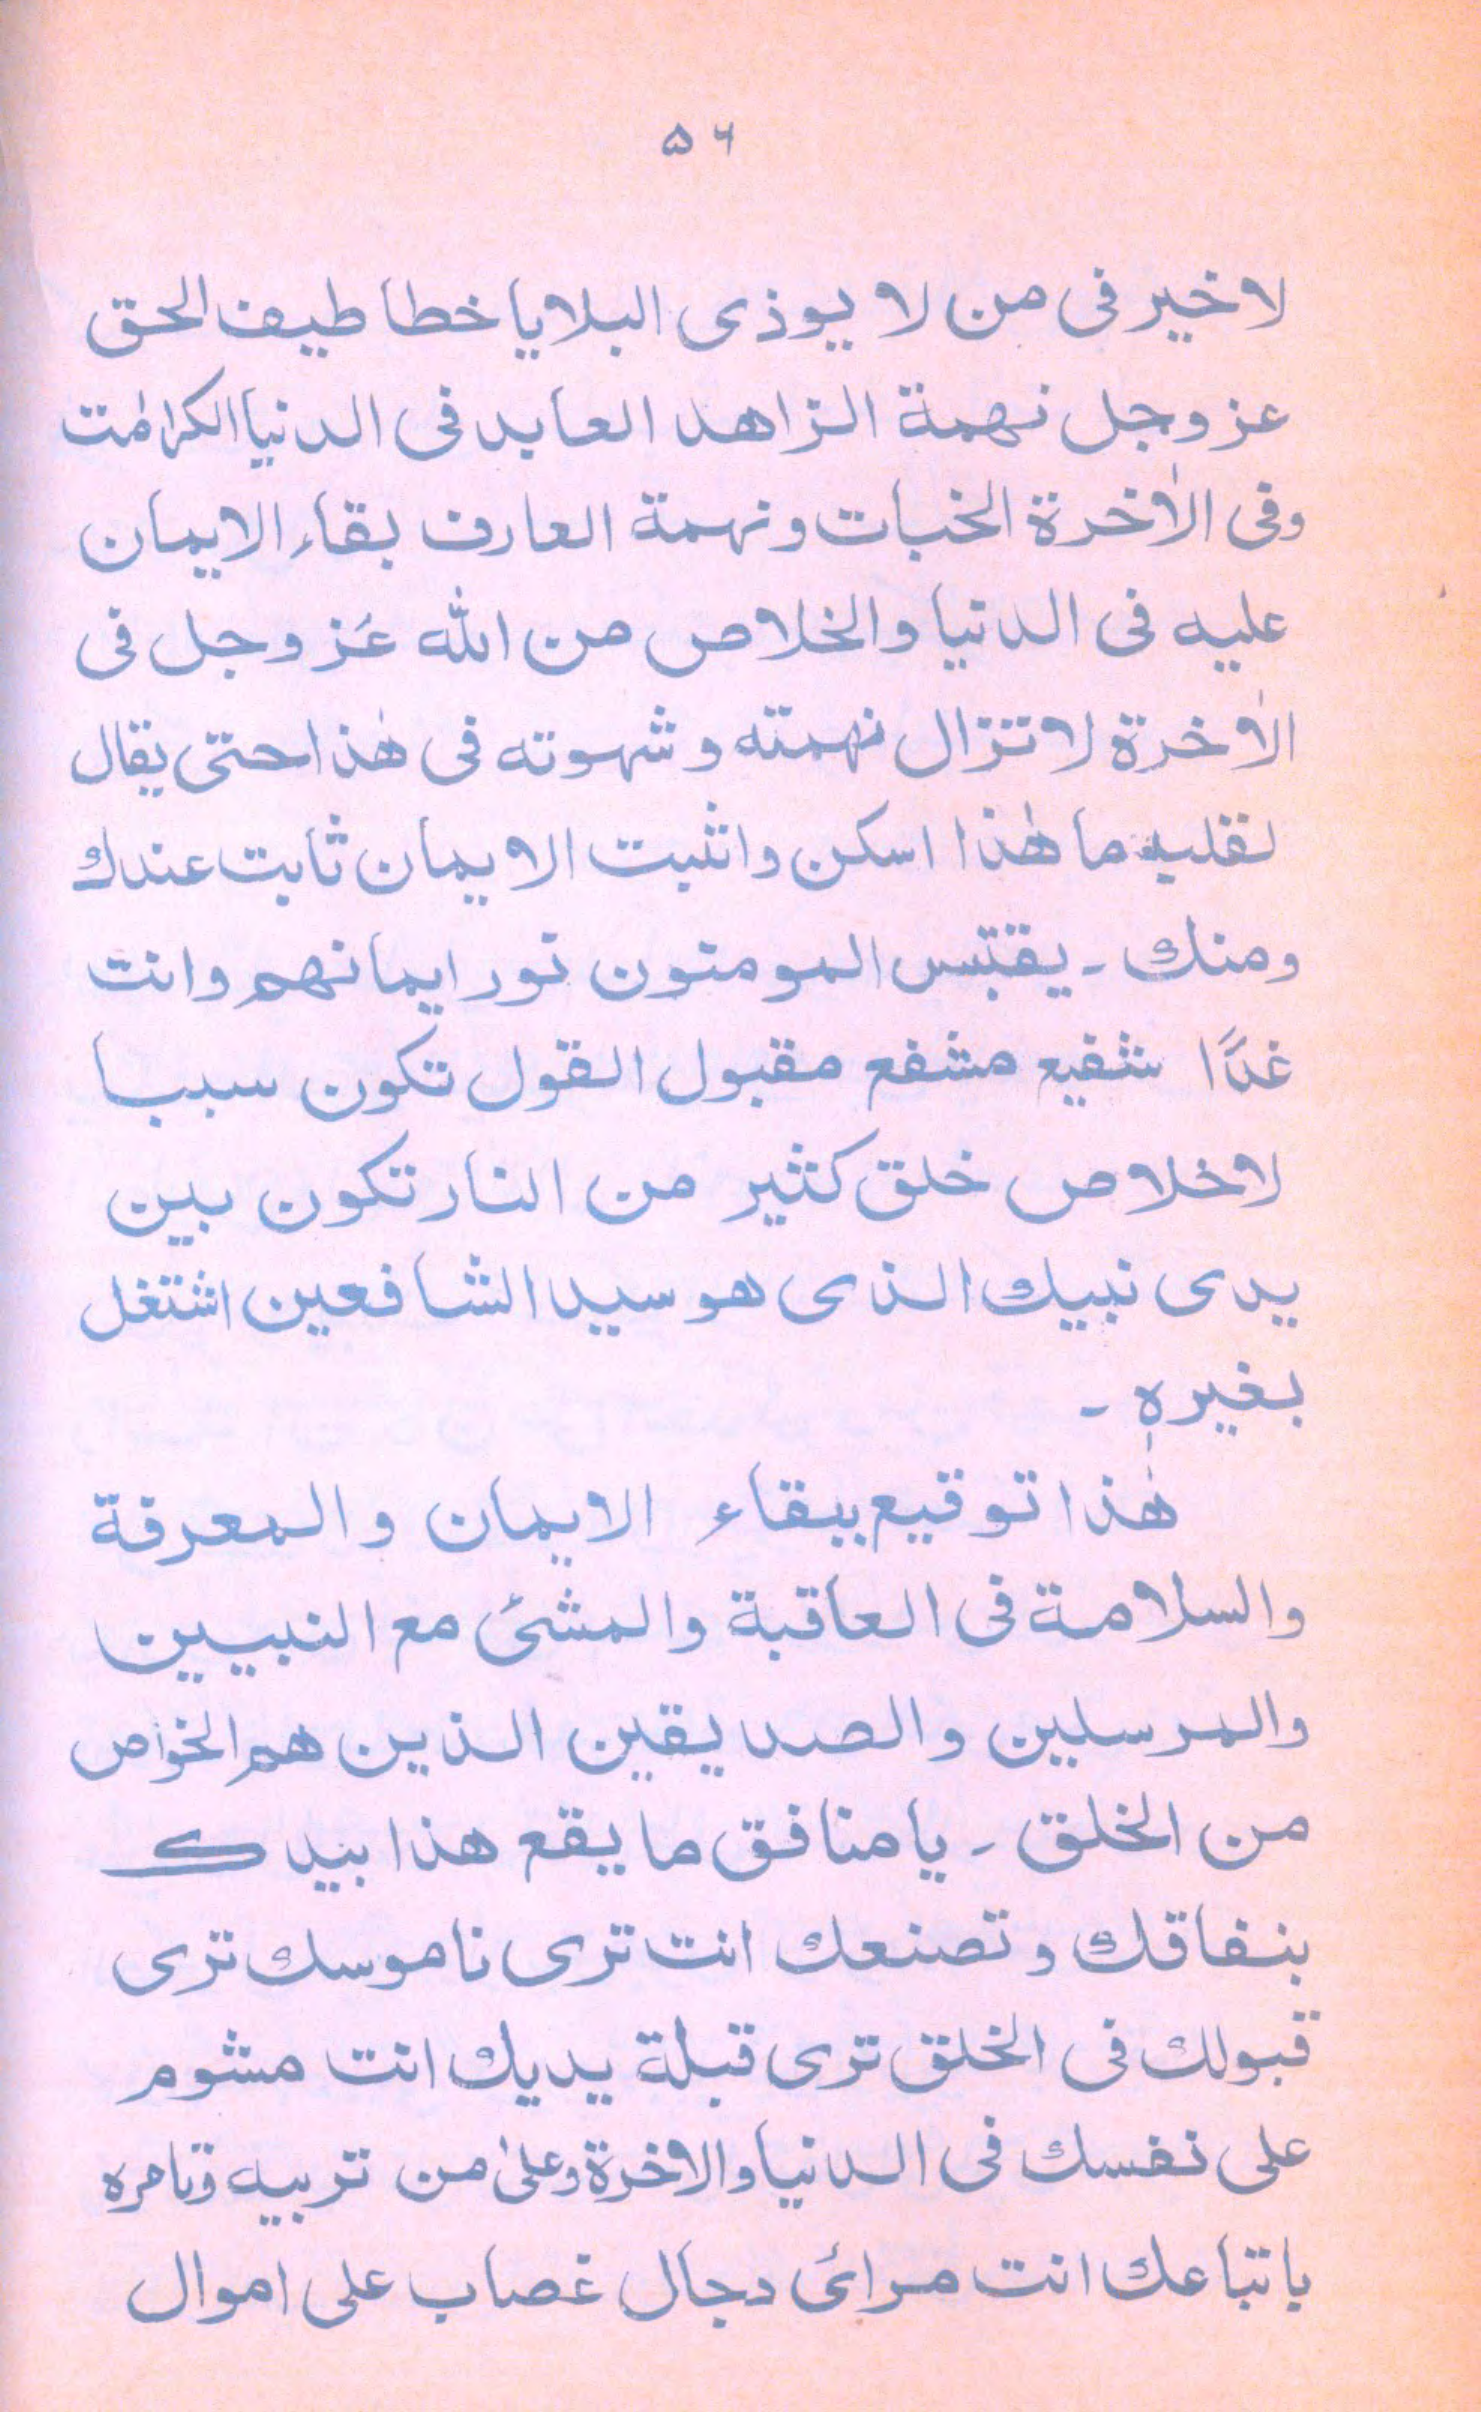 ۵۶
لا خير فى من لا يوذى البلايا خطا طيف الحق
عز وجل نهمة الزاهد العابد فى الدنيا الكرامت
وفى الاٰخرة الخبات ونهمة العارف بقاء الايمان
عليه فى الدنيا والخلاص من الله عَز وجل فى
الاٰخرة لا تزال نهمته وشهوته فى هٰذا حتى يقال
لقلبه ما هٰذا اسكن واثبت الايمان ثابت عندك
ومنك ۔ يقتبس المومنون نور ايمانهم وانت
غدًا شفيع مشفع مقبول القول تكون سببا
لاخلاص خلق كثير من النار تكون بين
يدى نبيك الذى هو سيد الشافعين اشتغل
بغيره ۔
هٰذا توقيع ببقاء الايمان والمعرفة
والسلامة فى العاقبة والمشئ مع النبيين
والمرسلين والصديقين الذين هم الخواص
من الخلق ۔ يا منافق ما يقع هذا بيدك
بنفاقك وتصنعك انت ترى ناموسك ترى
قبولك فى الخلق ترى قبلة يديك انت مشوم
على نفسك فى الدنيا والاخرة وعلىٰ من تربيه وتامره
باتباعك انت مرائ دجال غصاب على اموال